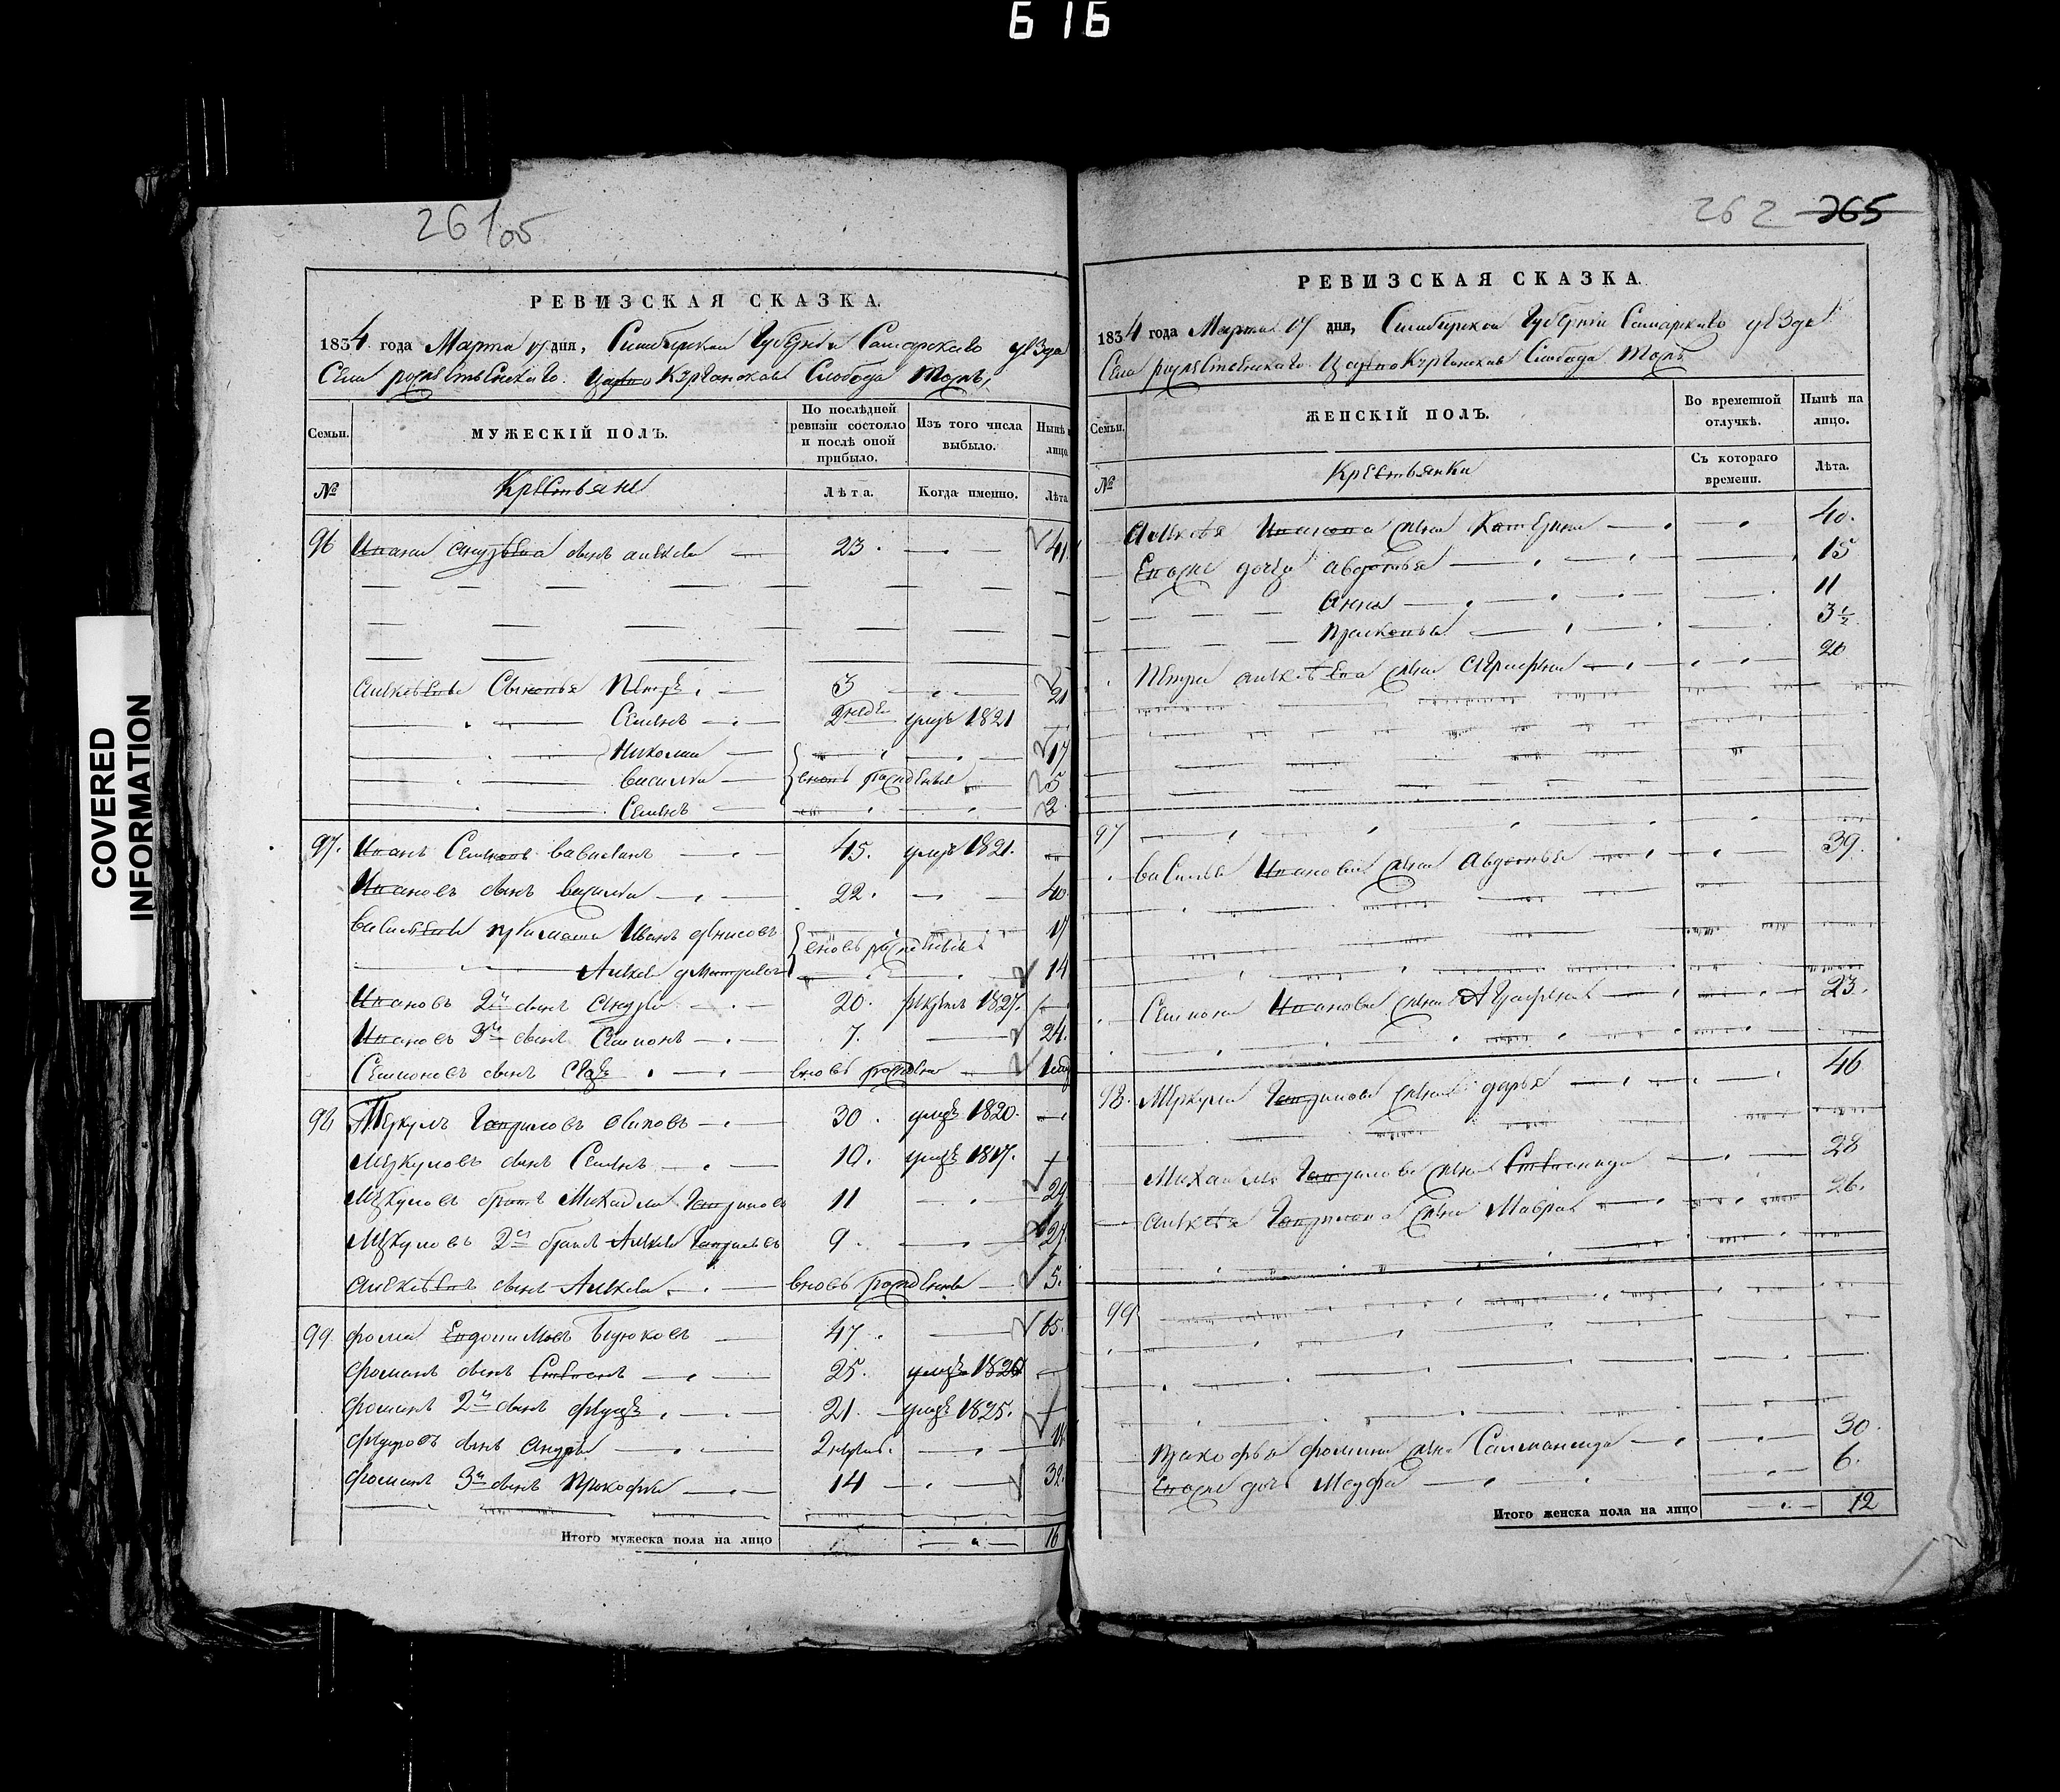 616
COVERED
INFORMATION
261
РЕВИЗСКАЯ СКАЗКА.
1834 года Марта 17 дня, Симбирской Губернiи Самарскаго уѣзда
Села рождественскаго Царево Курганская Слобода тожъ,
Семьи.
МУЖЕСКІЙ ПОЛЪ.
По послѣдней ревизіи состояло и послѣ оной прибыло.
Изъ того числа выбыло.
Нынѣ лицо
№
Крестьяне
Лѣта.
Когда именно.
Лѣта
96 Ивана сынъ алексѣй 23. 41.
Алексѣевы Сыновья Петръ 3 21
Семенъ 2 недѣл умеръ 1821
Николай 17
василий вновь рожденные 5
Семенъ 2
97. Иванъ Семеновъ 45. умеръ 1821.
Ивановъ сынъ василий 22. 40.
Иванъ денисовъ 17
вновь рожденные
Алексѣй дмитриевъ 14
Ивановъ 2й сынъ андрей 20. рекрутъ 1827.
Ивановъ 3й сынъ Семионъ 7. 24.
Семионовъ сынъ вновь рожден 1 год
98 Меркулъ Гавриловъ осиповъ 30. умеръ 1820.
Меркуловъ сынъ Семенъ 10. умеръ 1817.
Меркуловъ братъ Михайла Гавриловъ 11 29
Меркуловъ 2й братъ Алексѣй Гавриловъ 9. 27.
алексѣевъ сынъ Алексѣй вновь рожденны 5.
99. фома 47. 65.
фоминъ сынъ Степанъ 25. умеръ 1820
фоминъ 2й сынъ федоръ 21. умеръ 1825.
федоровъ сынъ андрей 2 недѣл.
фоминъ 3й сынъ Прокофий 14 32.
Итого мужеска пола на лицо 16
262 265
РЕВИЗСКАЯ СКАЗКА.
1834 года Марта 17 дня, Симбирской Губернiи Самарскаго уѣзда
Села рождественскаго Царево Курганская Слобода тожъ
Семьи.
ЖЕНСКІЙ ПОЛЪ.
Во временной отлучкѣ.
Нынѣ на лицо.
№
Крестьянки
Съ котораго времени.
Лѣта.
Алексѣя Иванова жена Катерина 40.
Евоже дочери авдотья 15
Анна 11
прасковья 3½
Петра алексѣева жена аграфена 20
97
василья Иванова жена Авдотья 39.
Семиона Иванова жена Аграфена 23.
98. Меркула Гаврилова жена дарья 46
Михаила Гаврилова жена Степанида 28
алексѣя Гаврилова жена Мавра 26.
99
прокофья фомина жена Саламанида 30.
Евоже дочь 6.
Итого женска пола на лицо 12